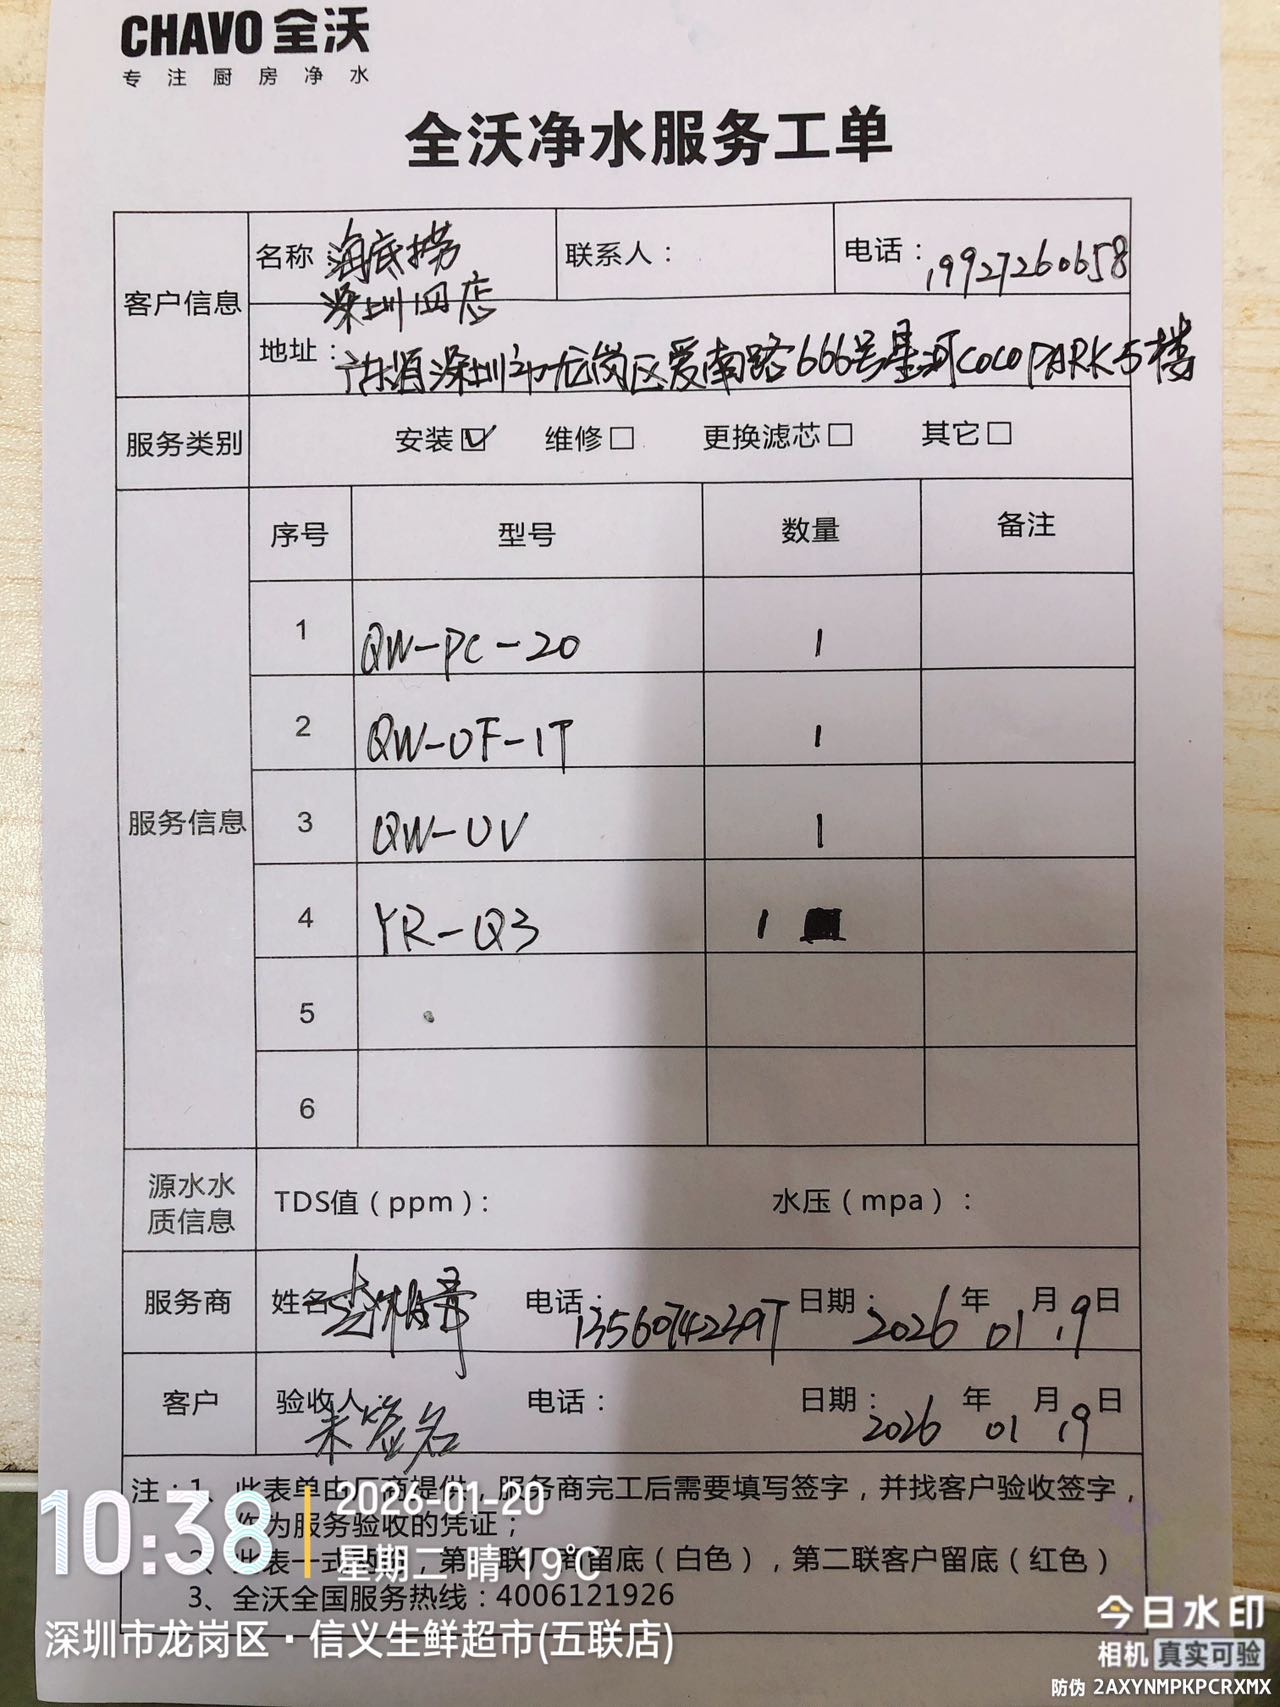 CHAVO 全沃
专注厨房净水
全沃净水服务工单
客户信息
名称 海底捞
深圳四店
联系人：
电话：19927260658
地址：广东省深圳市龙岗区爱南路666号星河COCOPARK5楼
服务类别 安装☑ 维修□ 更换滤芯□ 其它□
服务信息
序号 型号 数量 备注
1 QW-PC-20 1
2 QW-UF-1T 1
3 QW-UV 1
4 YR-Q3 1
5
6
源水水质信息 TDS值（ppm）： 水压（mpa）：
服务商 姓名 电话：13560742397 日期：2026年01月19日
客户 验收人：未签名 电话： 日期：2026年01月19日
注：1、此表单由厂商提供，服务商完工后需要填写签字，并找客户验收签字，
作为服务验收的凭证；
2、此表一式两联，第一联厂商留底（白色），第二联客户留底（红色）
3、全沃全国服务热线：4006121926
10:38
2026-01-20
星期二 晴 19℃
深圳市龙岗区·信义生鲜超市(五联店)
今日水印
相机 真实可验
防伪 2AXYNMPKPCRXMX